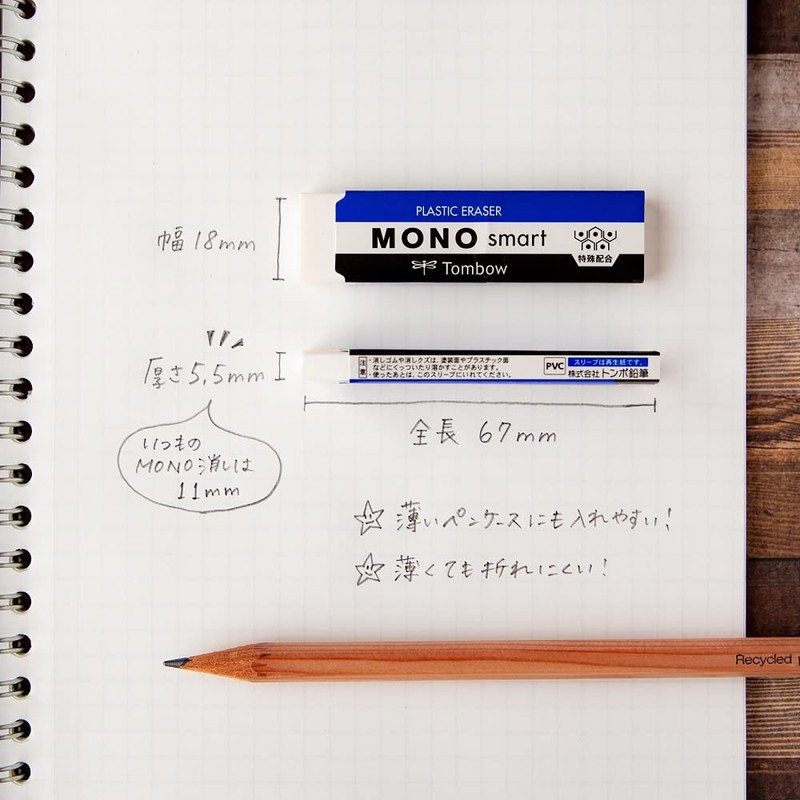 PLASTIC ERASER
MONO smart
Tombow
特殊配合
幅 18mm
注意
・消しゴムや消しクズは、塗装面やプラスチック面
などにくっついたり溶かすことがあります。
・使ったあとは、このスリーブにいれてください。
PVC
スリーブは再生紙です。
株式会社トンボ鉛筆
厚さ5.5mm
全長 67mm
いつもの
MONO消しは
11mm
薄いペンケースにも入れやすい!
薄くても折れにくい!
Recycled